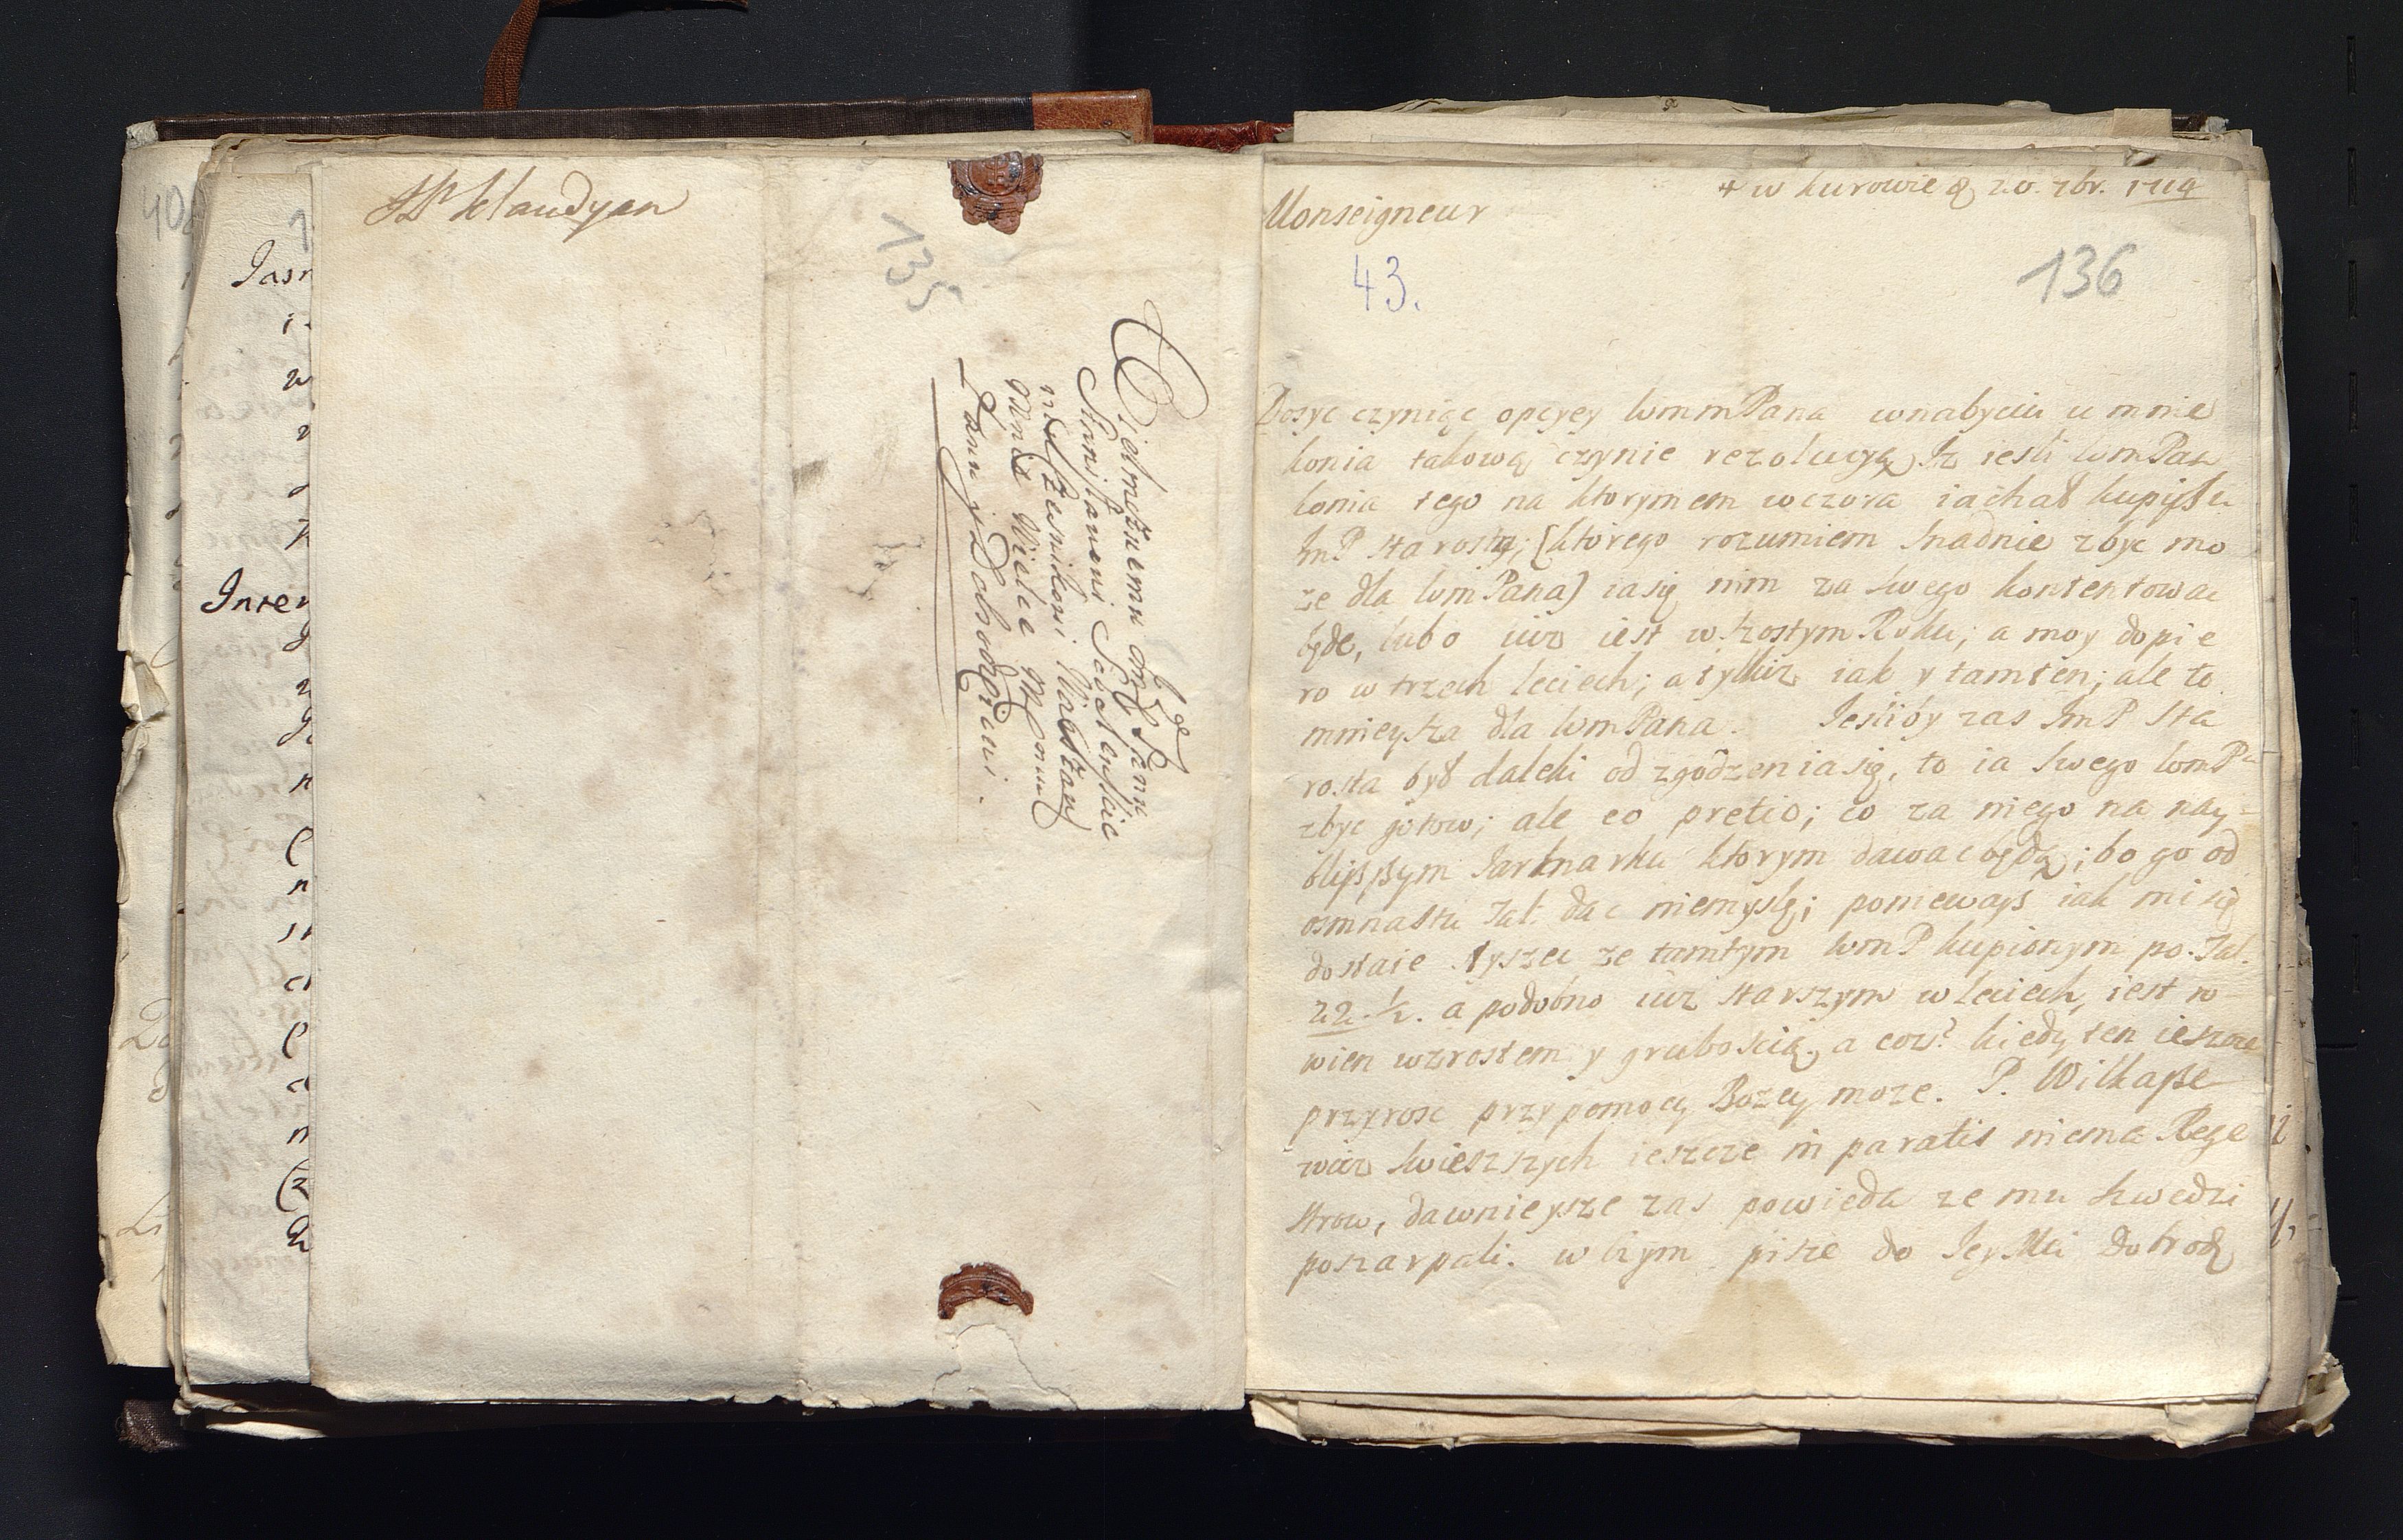 JP Klaudyan
135
Wielmożnemu Jmć Panu
Stanisławowi
Mnie Wielce Msciwemu
Panu y Dobrodziei.
w Kurowie d 20. 7br. 1714
Monseigneur
43.
136
Dosyc czyniąc opcyey WmmPana wnabyciu u mnie
konia takową czynie rezolucyą Iz iesli WmPan
konia tego na ktorymem wczora iachał kupisz u
ImP Starosty; (ktorego rozumiem snadnie zbyc mo
ze dla WmPana) iasię nim za swego kontentowac
będe, lubo iuz iest w szostym Roku; a moy dopie
ro w trzech leciech; a tylkiz iak y tamten; ale to
mnieysza dla WmPana. Jesliby zas ImP Sta
rosta był daleki od zgodzeniasię, to ia swego WmPu
zbyc gotow; ale eo pretio; co za niego na nay=
bliższym Jarknarku ktorym dawac będą; bo go od
osmnastu Tal. dac niemyslę; poniewasz iak mi się
dostaie slyszec ze tamtym WmP kupionym po. Tal.
22.½. a podobno iuz starszym w leciech, iest ro
wien wzrostem y grubością. a coz? kiedy ten ieszcze
przyrosc przy pomocy Bozey moze. P. Wilkasze
swiezszych ieszcze in paratis niema Rege
strow, dawnieysze zas powieda ze mu Szwedzi
poszarpali. w czym pisze do Jey Mci Dobrodz
Jasn
Inter